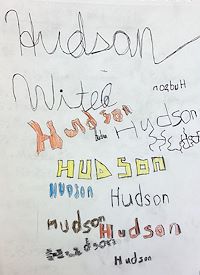 Hudson
Witeé
Hudson
Hudson
Hudson
HUDSON
HUDSON
Hudson
Hudson
Hudson
Hudson
Hudson